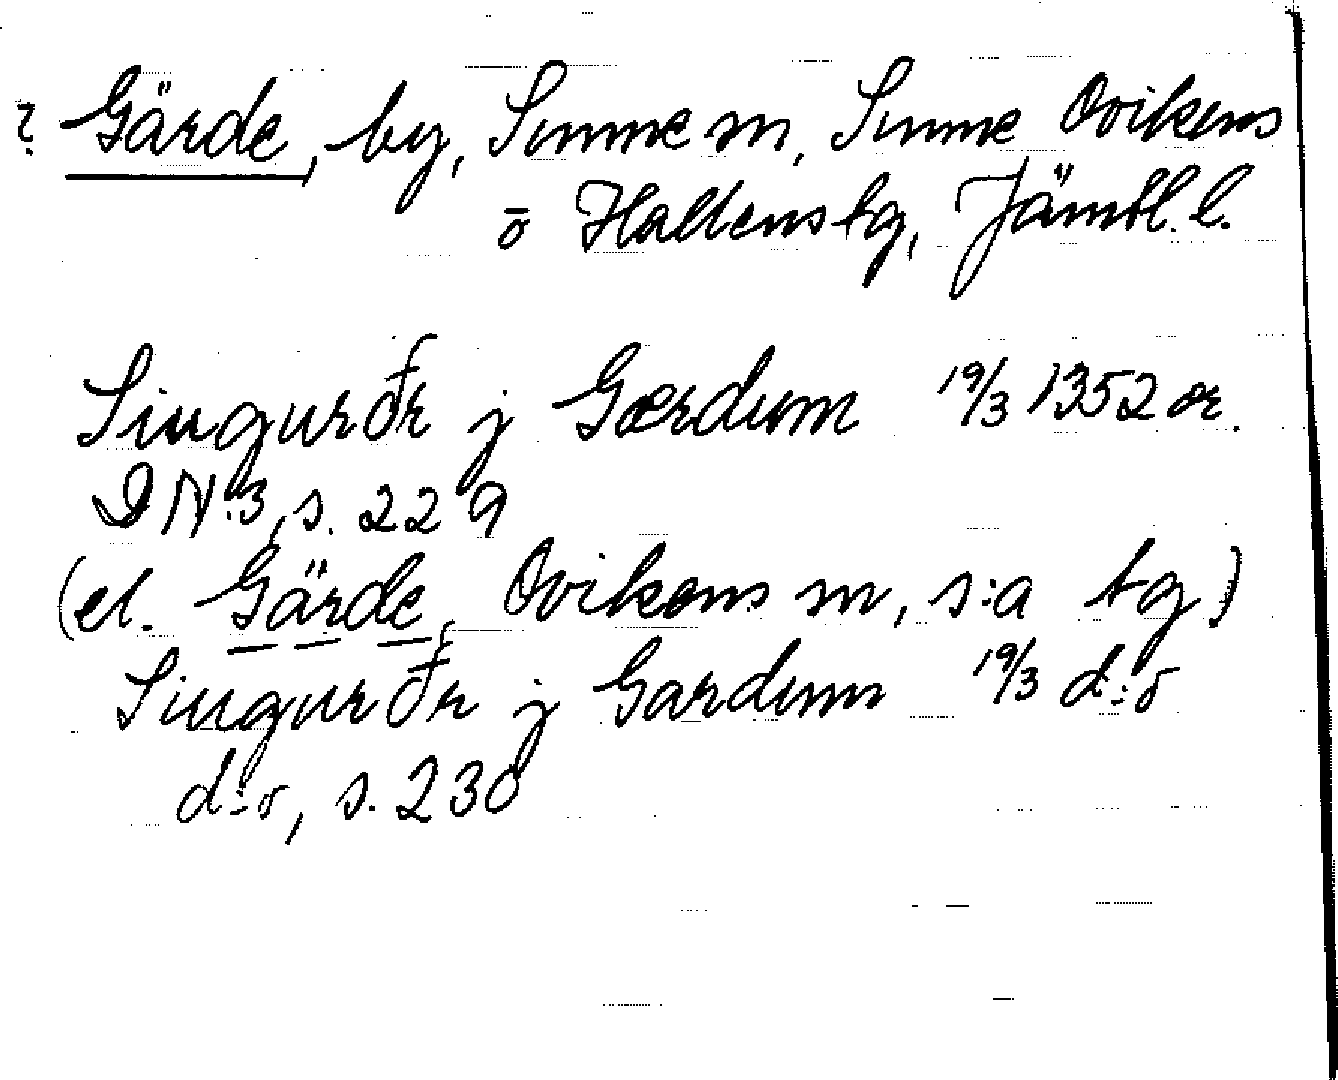 ? Gärde, by, Sunne sn, Sunne Ovikens
o Hallens tg, Jämtl. l.
Siugurðr j Gærdum 19/3 1352 or.
DN 3, s. 229
(el. Gärde, Ovikens sn, s:a tg)
Siugurðr j Gardum 19/3 d:o
d:o, s. 230